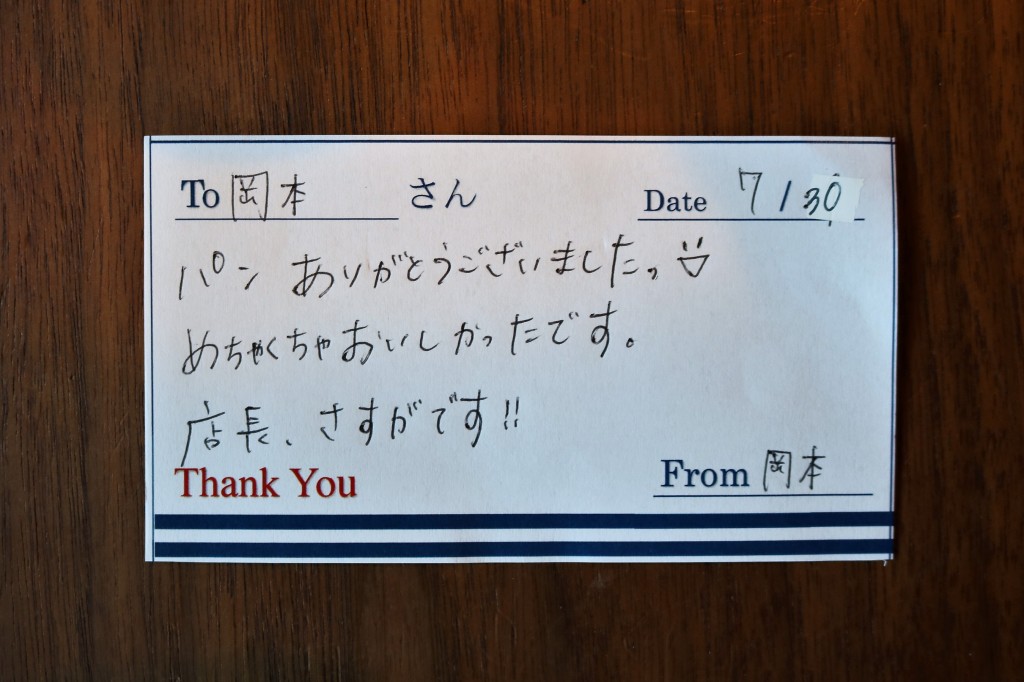 To 岡本 さん Date 7/30
パン ありがとうございましたっ
めちゃくちゃおいしかったです。
店長、さすがです!!
Thank You From 岡本